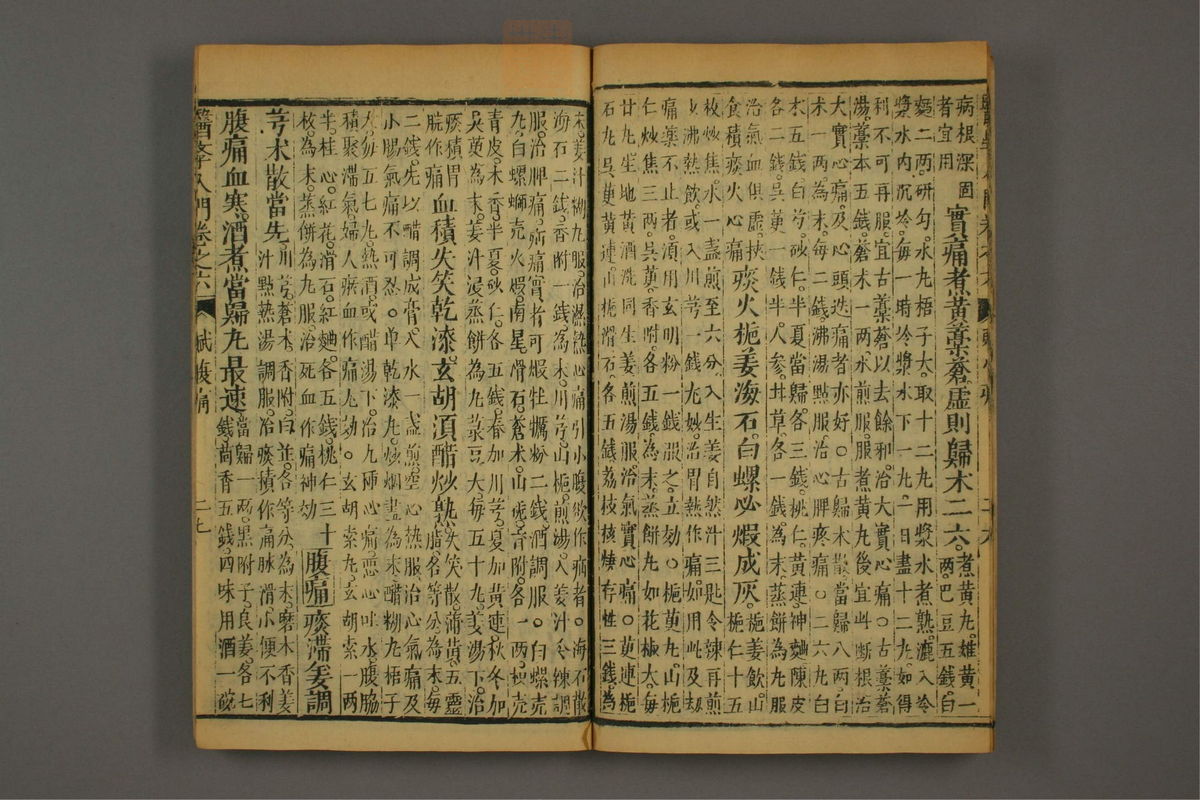 病根深固
者宜用
實痛煮黃藁蒼虛則歸木二六。
煮黃丸雄黃一
兩巴豆五錢白
麵二兩研勻水丸梧子大取十二丸用漿水煮熟漉入冷
漿水內沉冷每一時冷漿水下一丸一日盡十二丸如得
利不可再服宜古藁蒼以去餘邪治大實心痛○古藁蒼
湯藁本五錢蒼木一兩水煎服服煮黃丸後宜此斷根治
大實心痛及心頭迭痛者亦好○古歸木散當歸八兩白
木一兩為末每二錢沸湯點服治心脾疼痛○二六丸白
木五錢白芍砂仁半夏當歸各三錢桃仁黃連神麯陳皮
各二錢吳萸一錢半人參甘草各一錢為末蒸餅為丸服
治氣血俱虛挾
食積痰火心痛
痰火梔姜海石白螺必煆成灰。
梔姜飲山
梔仁十五
枚炒焦水一盞煎至六分入生姜自然汁三匙令辣再煎
以沸熱飲或入川芎一錢尤妙治胃熱作痛如用此及劫
痛藥不止者須用玄明粉一錢服之立効○梔萸丸山梔
仁炒焦三兩吳萸香附各五錢為末蒸餅丸如花椒大每
廿丸生地黃酒洗同生姜煎湯服治氣實心痛○萸連梔
石丸吳萸黃連山梔滑石各五錢荔枝核燒存性三錢為
末姜汁糊丸服治濕熱心痛引小腹欲作疝者○海石散
海石二錢香附一錢為末川芎山梔煎湯入姜汁令辣調
服治脾痛疝痛實者可煆牡蠣粉二錢酒調服○白螺壳
丸白螺螄壳火煆南星滑石蒼木山梔香附各一兩枳壳
青皮木香半夏砂仁各五錢春加川芎夏加黃連秋冬加
吳萸為末姜汁浸蒸餅為丸菉豆大每五十丸姜湯下治
痰積胃
脘作痛
血積失笑乾漆玄胡須醋炒熟
失笑散蒲黃五靈
脂各等分為末每
二錢先以醋調成膏入水一盞煎空心熱服治心氣痛及
小腸氣痛不可忍○單乾漆丸炒烟盡為末醋糊丸梧子
大每五七丸熱酒或醋湯下治九種心痛惡心吐水腹脇
積聚滯氣婦人瘀血作痛尤効○玄胡索丸玄胡索一兩
半桂心紅花滑石紅麯各五錢桃仁三十
枚為末蒸餅為丸服治死血作痛神効
腹痛
痰滯姜調
芎木散當先
川芎蒼木香附白芷各等分為末磨木香姜
汁點熱湯調服治痰積作痛脉滑小便不利
腹痛血寒。酒煮當歸丸最速
當歸一兩黑附子良姜各七
錢茴香五錢四味用酒一碗
醫學入門卷之六 賦 腹痛 二七